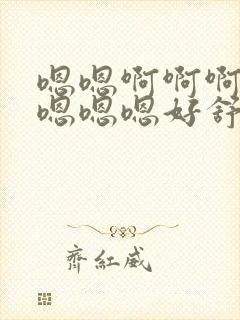 嗯嗯啊啊啊
嗯嗯嗯好舒
齊紅威